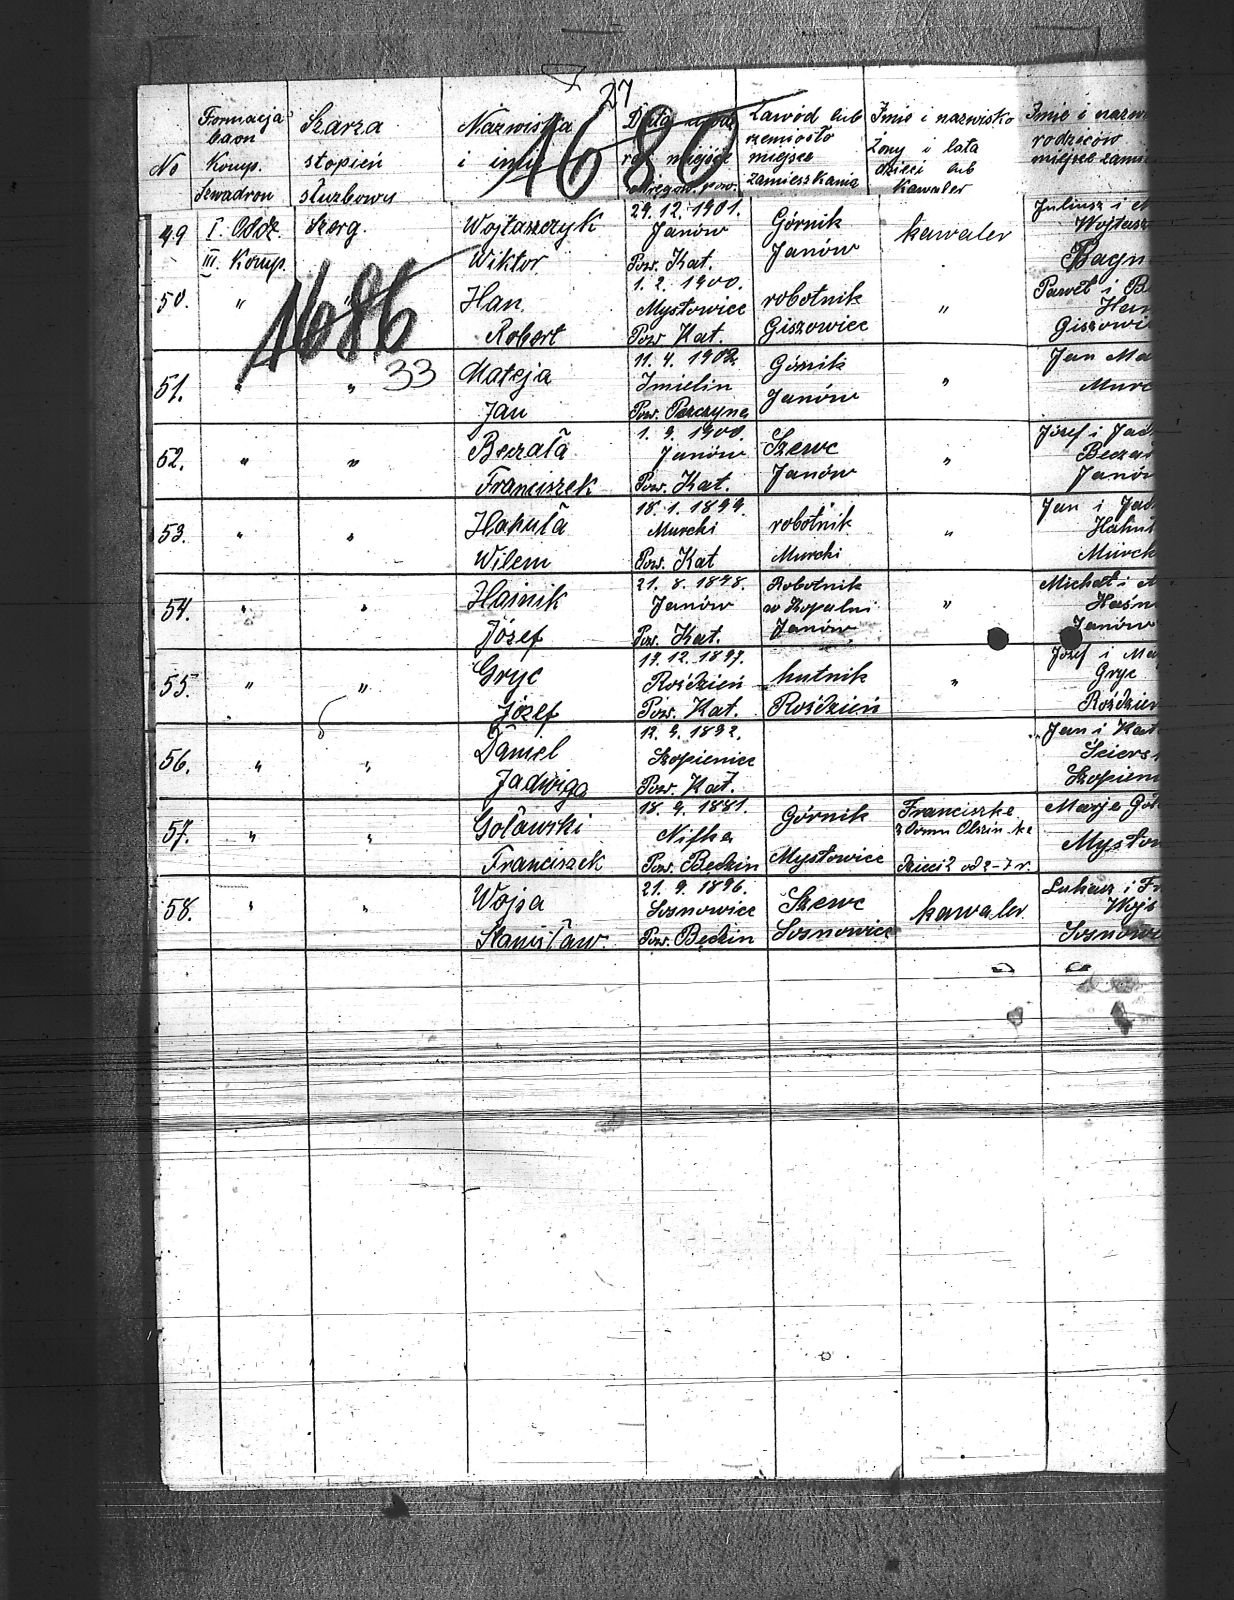 27
1680
No
Formacja
baon
Komp.
Szwadron
Szarża
stopień
służbowy
Nazwiska
i imię
Data urodz.
rok miejsce
pow.
Zawód lub
rzemiosło
miejsce
zamieszkania
Imię i nazwisko
Żony i lata
dzieci lub
Kawaler
Imię i nazw
rodziców
miejsce zami
49
I. Oddz.
III. Komp.
Szerg.
Wojtaszczyk
Wiktor
29. 12. 1901.
Janów
Pow. Kat.
Górnik
Janów
kawaler
Juljusz i
Wojtasz
Bagn
1686
50.
"
"
Han.
Robert
1. 2. 1900.
Mysłowice
Pow Kat.
robotnik
Giszowiec
"
Paweł i
Han
Giszowi
33
51.
"
"
Mateja
Jan
11. 4. 1902.
Imielin
Pow. Pszczyna
Górnik
Janów
"
Jan Ma
Murc
52.
"
"
Beczała
Franciszek
1. 9. 1900.
Janów
Pow. Kat.
Szewc
Janów
"
Józef i Jad
Beczał
Janów
53.
"
"
Hahuła
Wilem
18. 1. 1899.
Murcki
Pow. Kat
robotnik
Murcki
"
Jan i Jad
Hahuł
Murck
54.
"
"
Hainik
Józef
21. 8. 1898.
Janów
Pow. Kat.
Robotnik
w Kopalni
Janów
"
Michał i
Janów
55.
"
"
Gryc
Józef
19. 12. 1897.
Rożdzień
Pow. Kat.
hutnik
Rożdzień
"
Józef i Ma
Gryc
Rożdzień
56.
"
"
Daniel
Jadwiga
19. 9. 1892.
Szopienice
Pow. Kat.
Jan i Kat
Ściers
Szopieni
57.
"
"
Goławski
Franciszek
18. 9. 1881.
Nifka
Pow. Będzin
Górnik
Mysłowice
Franciszka
z domu
Dzieci 2 od 2-7 r.
Marja Goł
Mysłow
58.
"
"
Wojsa
Stanisław.
21. 9. 1896.
Sosnowice
Pow. Będzin
Szewc
Sosnowice
kawaler
Łukasz i Fr
Wojs
Sosnowi